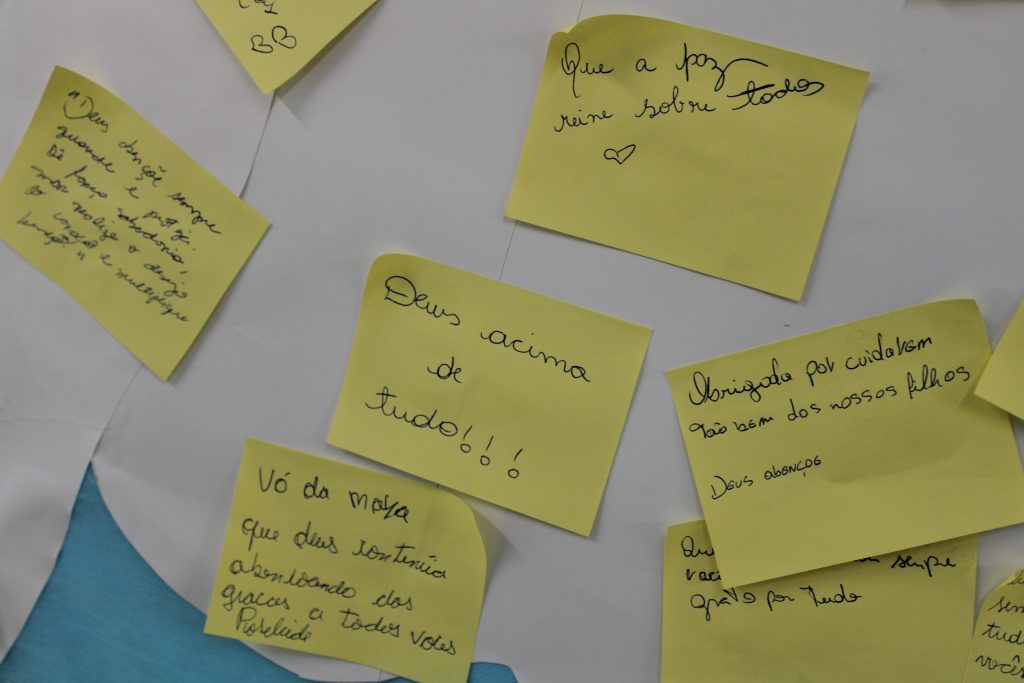 BB
"Deus abençõe sempre
guarde e proteja.
Dê força, sabedoria,
realize o desejo
do coração e multiplique
Que a paz
reine sobre todos
Deus acima
de
tudo!!!
Obrigada por cuidarem
tão bem dos nossos filhos
Deus abençoe
Vó da maya
que deus contenúa
abenloando dos
gracas a todos voces
Roseleide
Qu
sempre
grato por tudo
sem
tud
você